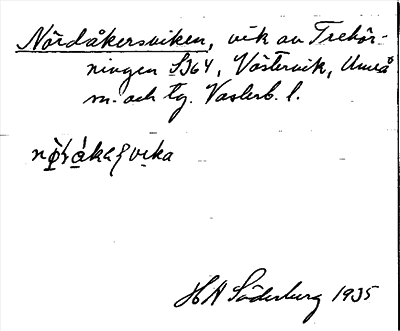 Nördåkersviken, vik av Trehör-
ningen SJ64, Västervik, Umeå
m. och tg. Vasterb. l.
H A Söderberg 1935